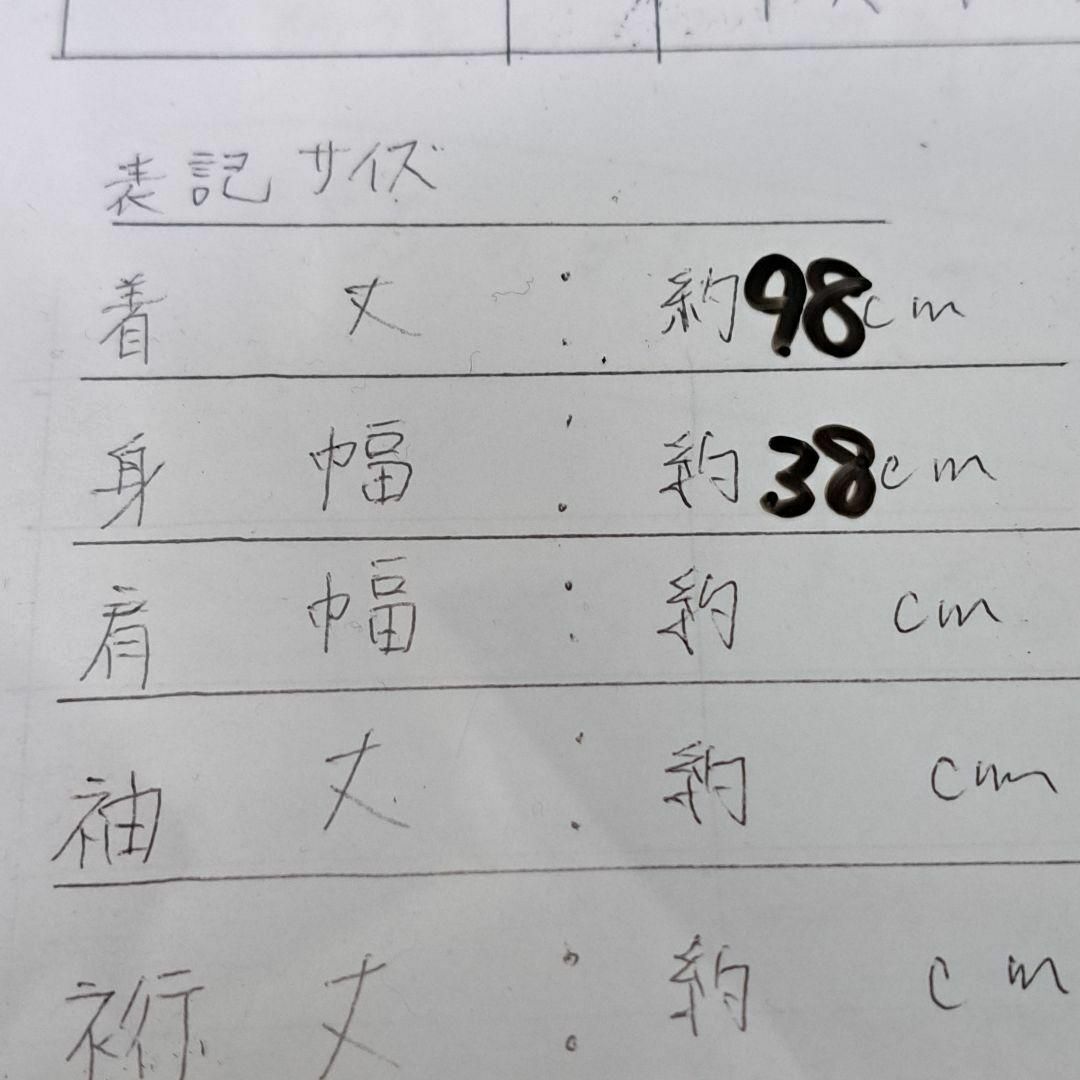 表記サイズ
着丈:約98cm
身幅:約38cm
肩幅:約 cm
袖丈:約 cm
裄丈:約 cm